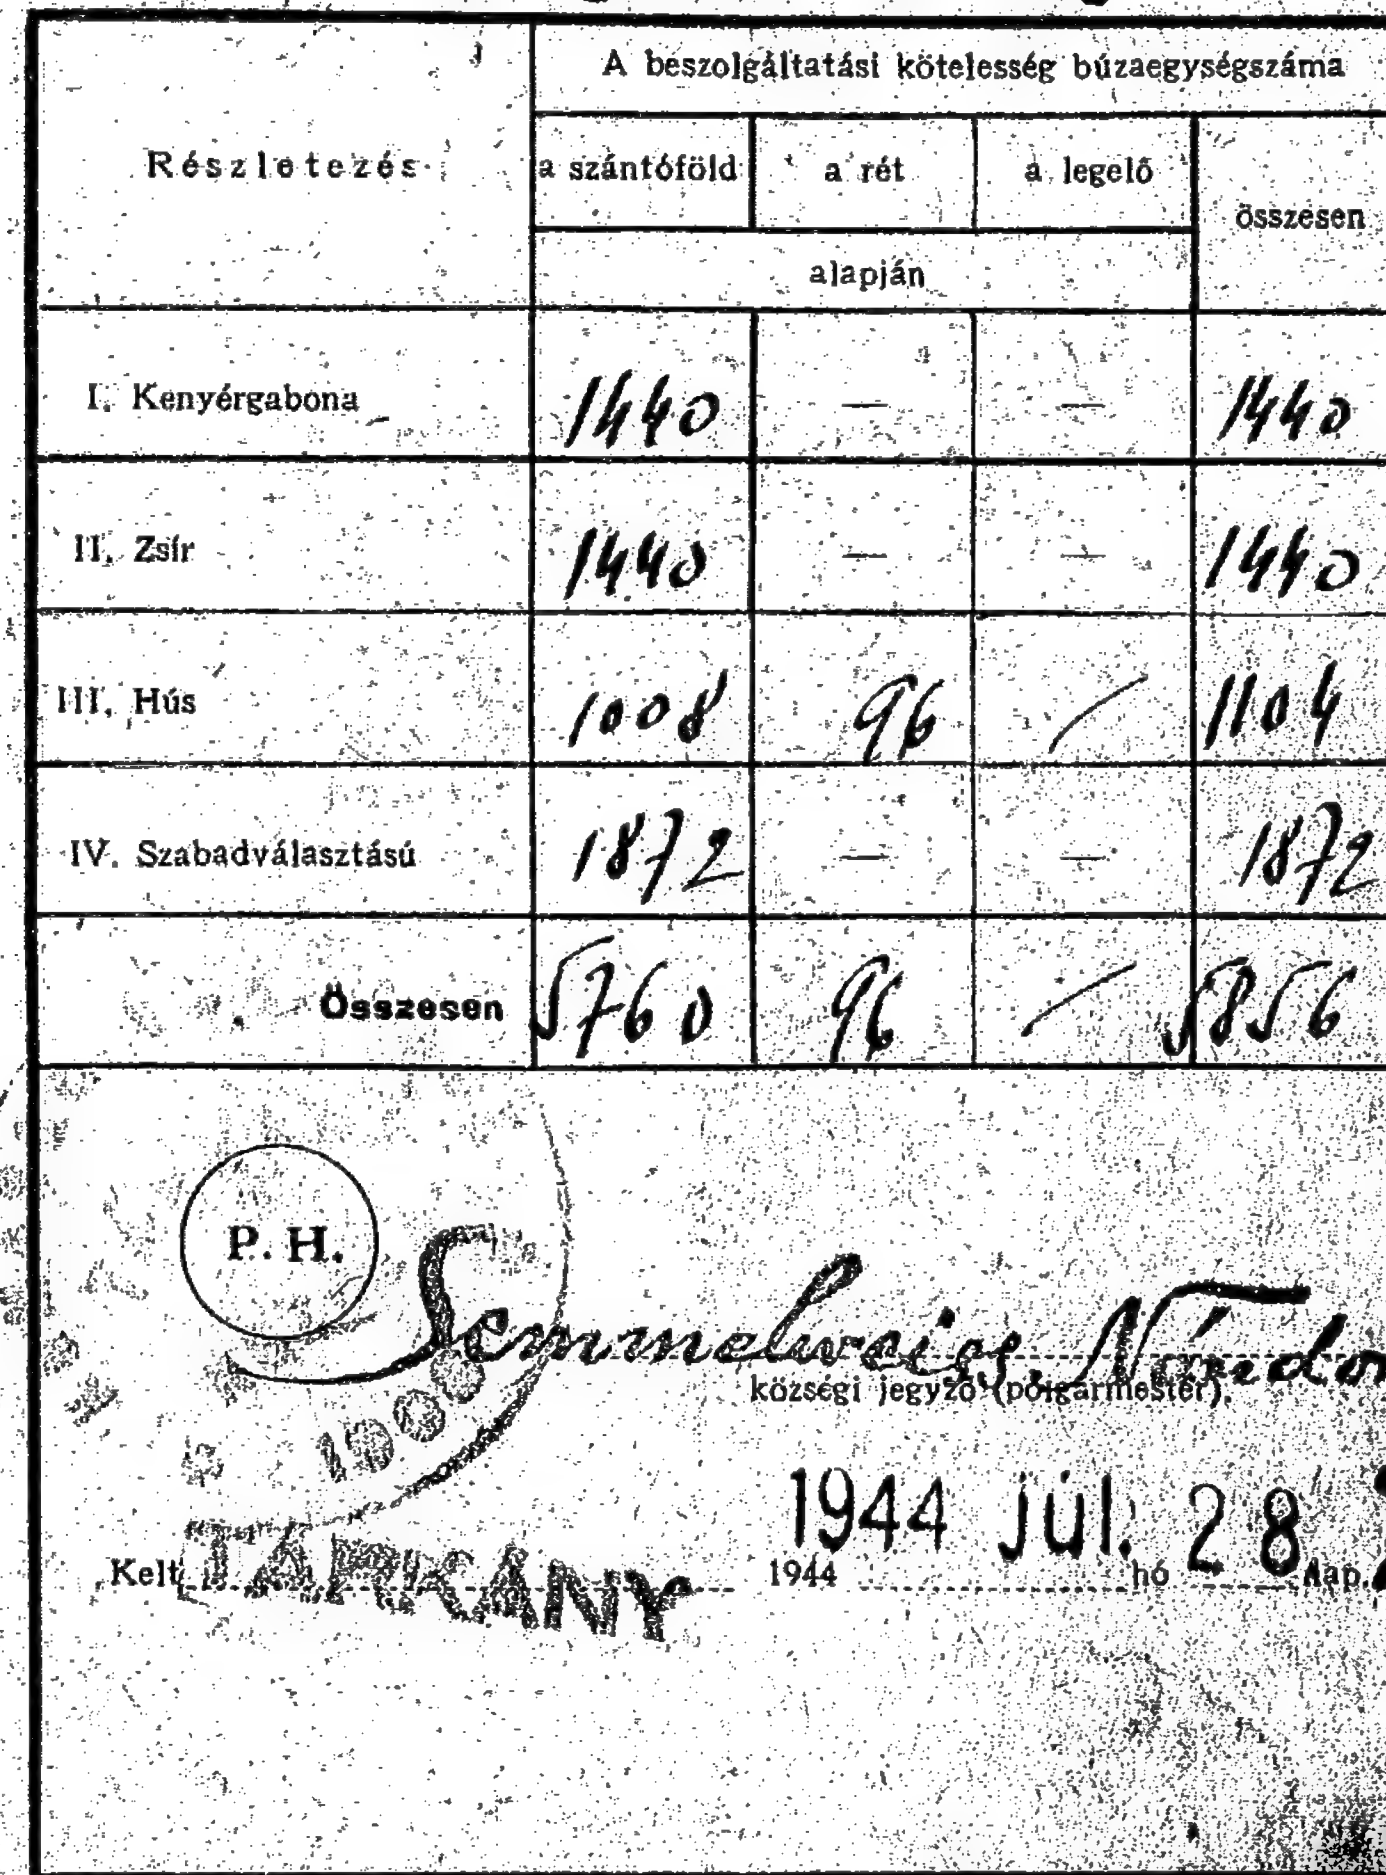 A beszolgáltatási kötelesség búzaegységszáma
Részletezés a szántóföld a rét a legelő összesen
alapján
I. Kenyérgabona 1440 — — 1440
II. Zsír 1440 — — 1440
III. Hús 1008 96 / 1104
IV. Szabadválasztású 1872 — — 1872
Összesen 5760 96 / 5856
P. H.
Semmelweis Nándor
községi jegyző (polgármester).
190
1944 júl. 28
Kelt TÁRKÁNY 1944 hó nap.